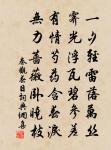 一夕輕雷落萬絲
霽光浮瓦碧參差
有情芍藥含春淚
無力薔薇臥曉枝
秦觀春日詞典網